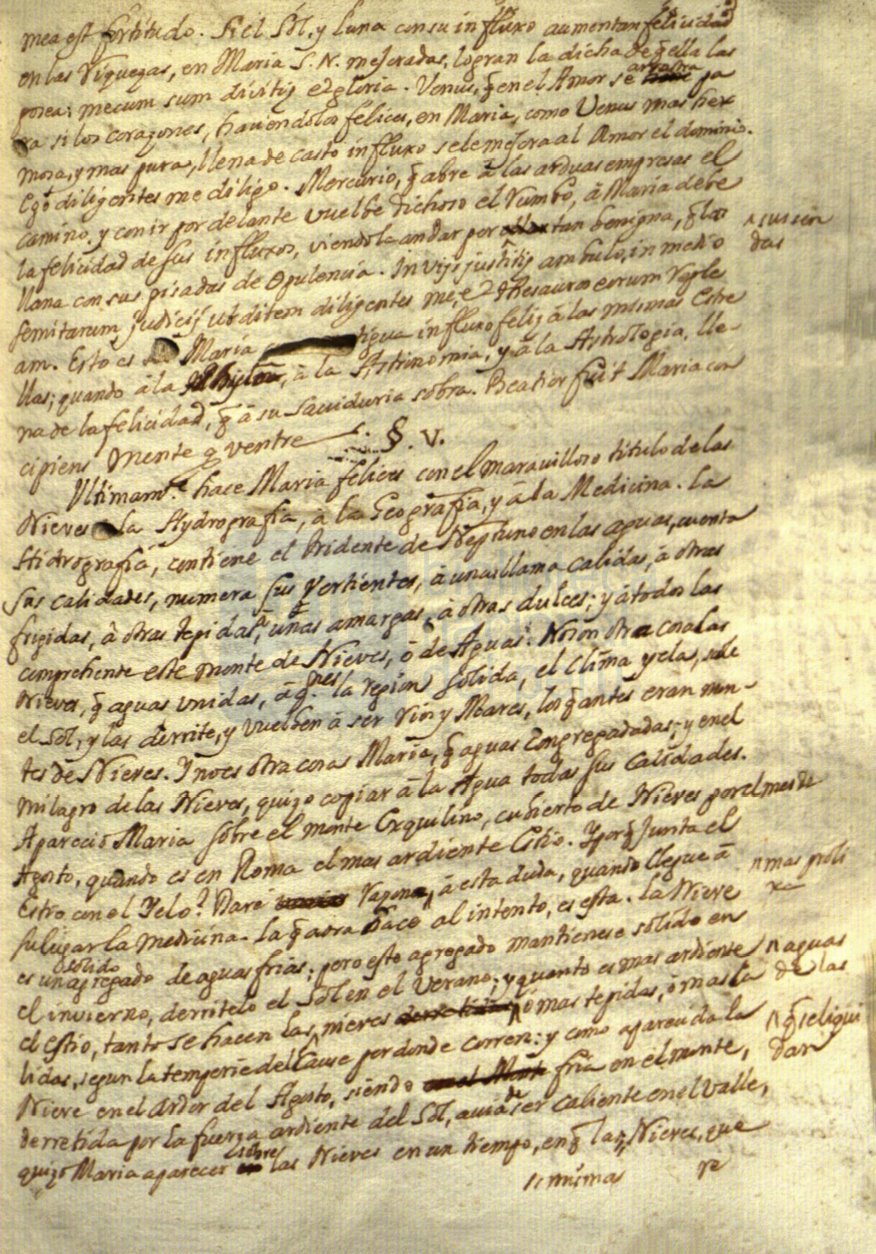 mea est fortitudo. Si el Sól, y Luna con su influxo aumentan felicidad
en las Riquezas, en Maria S. N. mejoradas, logran la dicha de q̃ ella las
posea: mecum sum divitiȩ et gloria. Venus, q̃ en el Amor se arrastra pa
ra si los corazones, haciendolos felices, en Maria, como Venus mas her
mosa, y mas pura, llena de casto influxo se le mejora al Amor el dominio.
Ego diligentes me diligo. Mercurio, q̃ abre à las arduas empresas el
camino, y con ir por delante vuelbe dichoso el rumbo, à Maria debe
la felicidad de sus influxos, viendola andar por tan benigna, q̃ las ^ sus sen
das
llana con sus pisadas de Opulencia. In vijs justitiȩ ambulo, in medio
semitarum judicij ut ditem diligentes me, et thesauros eorum reple
am. Esto es Maria influxo feliz à las mismas Estre
llas; quando à la à la Astrinomia, y à la Astrologia, lle
na de la felicidad, q̃ à su saviduria sobra. Beatior fuit Maria con
cipiens mente q̃ ventre.
§. V.
Ultimam.te hace Maria felices con el maravilloso titulo de las
Nieves à la Hydrografia, à la Geografia, y à la Medicina. La
Hidrografia, contiene el tridente de Neptuno en las aguas, cuenta
sus calidades, numera sus vertientes, à unas llama calidas, à otras
frigidas, à otras tepidas, à unas amargas, à otras dulces; y à todas las
comprehente este monte de Nieves, ò de Aguas. No son otra cosa las
Nieves, q̃ aguas unidas, à q.nes la region solida, el clima yela, sale
el Sól, y las derrite, y vuelben à ser rios y Mares, los q̃ antes eran mon-
tes de Nieves. Y no es otra cosa Maria, q̃ aguas congregadadas; y en el
milagro de las Nieves, quizo copiar à la Agua todas sus calidades.
Apareció Maria sobre el monte Exquilino, cubierto de Nieves por el mes de
Agosto, quando es en Roma el mas ardiente Estio. Y por q̃ junta el
Estio con el Yelo? Daré razon ^, à esta duda, quando llegue à ^ mas proli
xa
su lugar la medicina. La q̃ aora hace al intento, es esta. La Nieve
es un solido agregado de aguas frias; pero este agregado mantienese solido en
el invierno, derritelo el Sól en el Verano; y quanto es mas ardiente ^ aguas
de las
el estio, tanto se hacen las nieves ^ ó mas tepidas, ó mas ca
lidas, segun la temperie del Cause por donde corren: y como aparecida la ^ q̃ se liqui
dan
Nieve en el ardor del Agosto, siendo fria en el monte,
derretida por la fuerza ardiente del Sol, avia de ser caliente en el valle,
quizo Maria aparecer sobre las Nieves en un tiempo, en q̃ la Nieves, que
mismas re